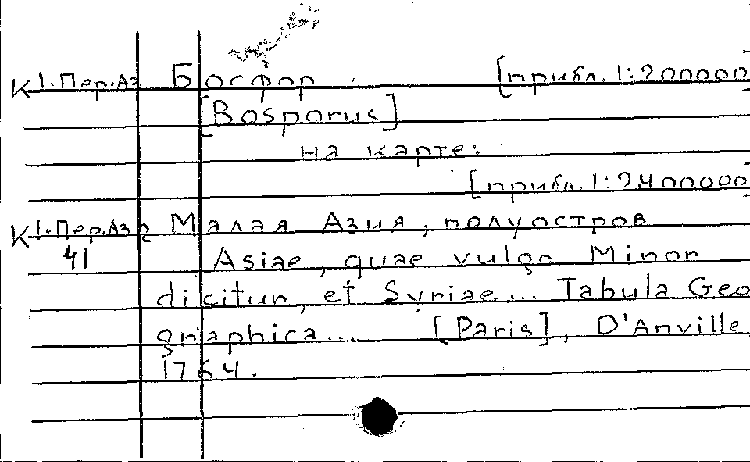 К 1.Пер.Аз Босфор. [прибл. 1:200000
[Bosporus]
на карте:
[прибл. 1:2400000
К 1.Пер.Аз Малая Азия, полуостров
41 Asiae, quae vulgo Minor
dicitur, et Syriae... Tabula Geo
graphica... [Paris], D'Anville,
1764.